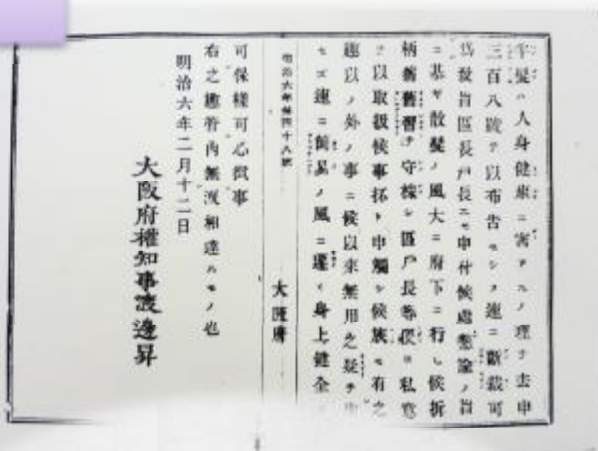 半髪ハ人身健康ニ害アルノ理ヲ去申
三百八號ヲ以布告セシメ速ニ斷裁可
為致旨區長戸長ニモ申付候處懇諭ノ旨
ニ基キ散髪ノ風大ニ府下ニ行レ候折
柄舊習ヲ守株シ區戸長等ノ私意
ヲ以取扱候事抔ト申觸シ候族モ有之
速以ノ外ノ事ニ候以來無用之疑ヲ
モズ速ニ簡易ノ風ニ遷リ身上健全
明治六年第四十八號
大阪府
可保樣可心得事
右之趣管内無洩相達スルモノ也
明治六年二月十二日
大阪府權知事渡邊昇